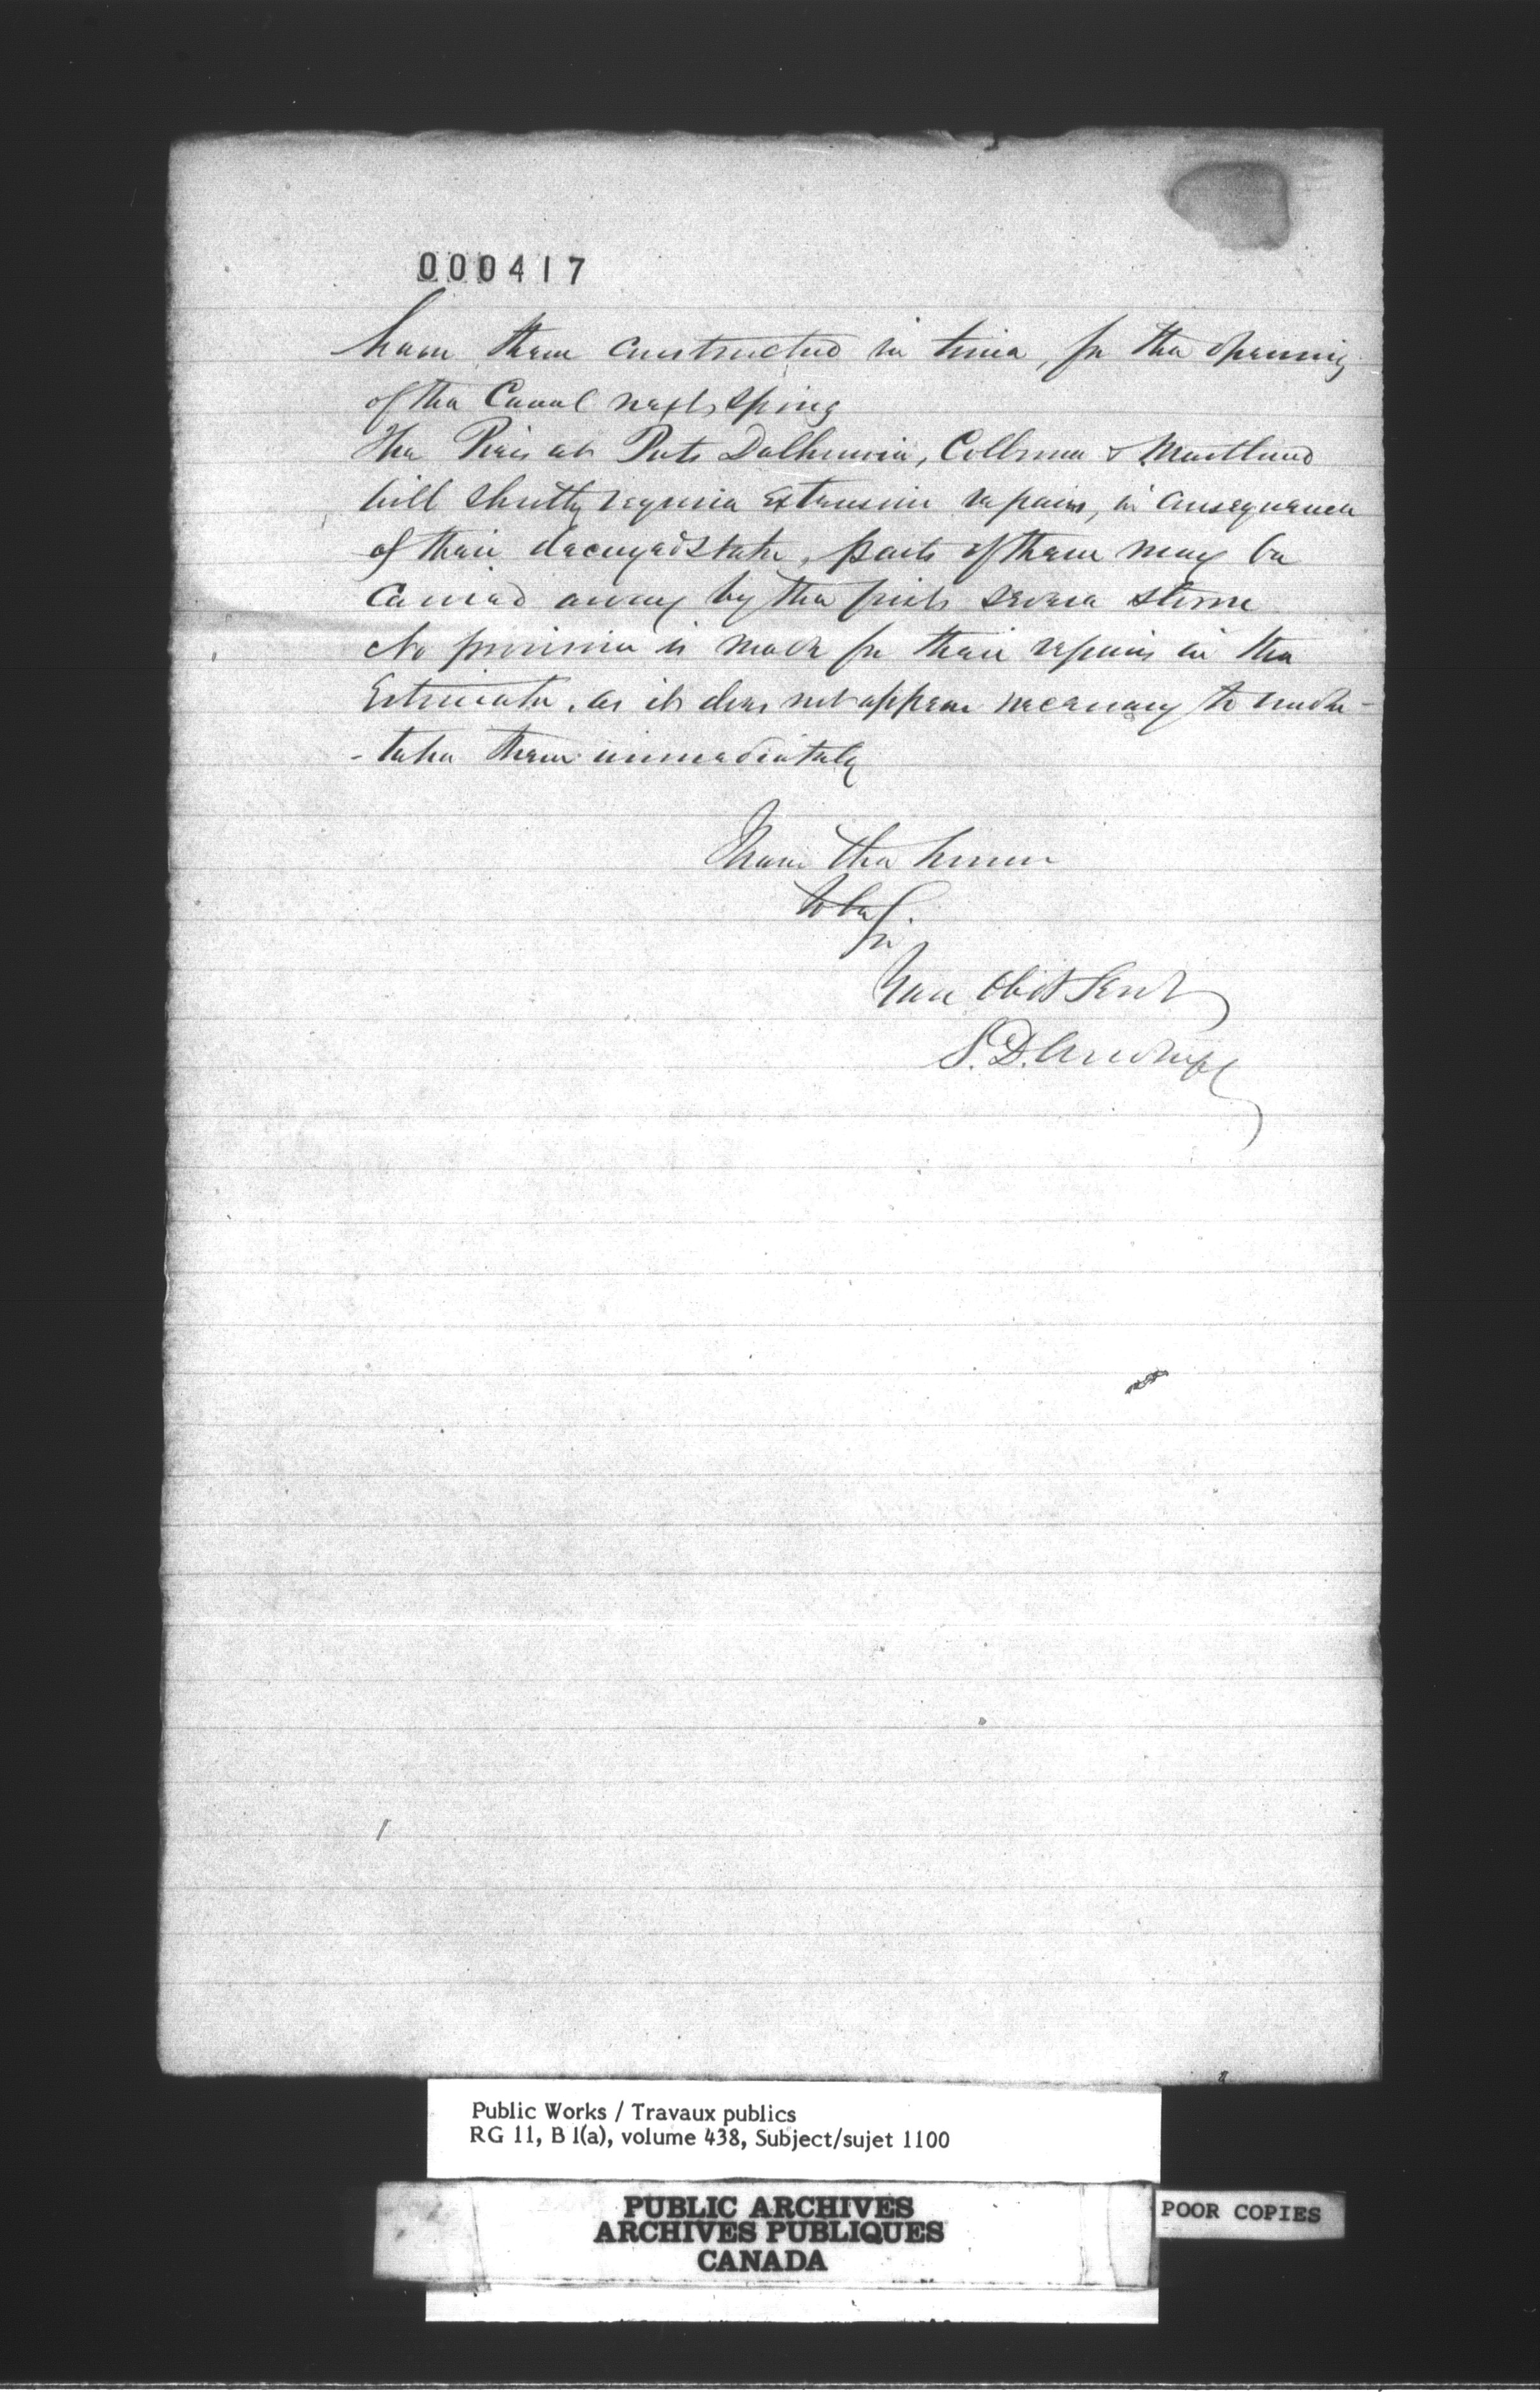 000417
have them constructed in time, for the opening
of the Canal next spring
The Piers at Ports Dalhousie, Colborne & Maitland
will shortly require extensive repairs, in consequence
of their decayed state, parts of them may be
carried away by the first severe storm
No provision is made for their repairs in the
Estimate, as it does not appear necessary to under-
-take them immediately
I have the honor
to be
Sir
Your Obdt Servt
S. D. Woodruff
Public Works / Travaux publics
RG 11, B 1(a), volume 438, Subject/sujet 1100
PUBLIC ARCHIVES
ARCHIVES PUBLIQUES
CANADA
POOR COPIES